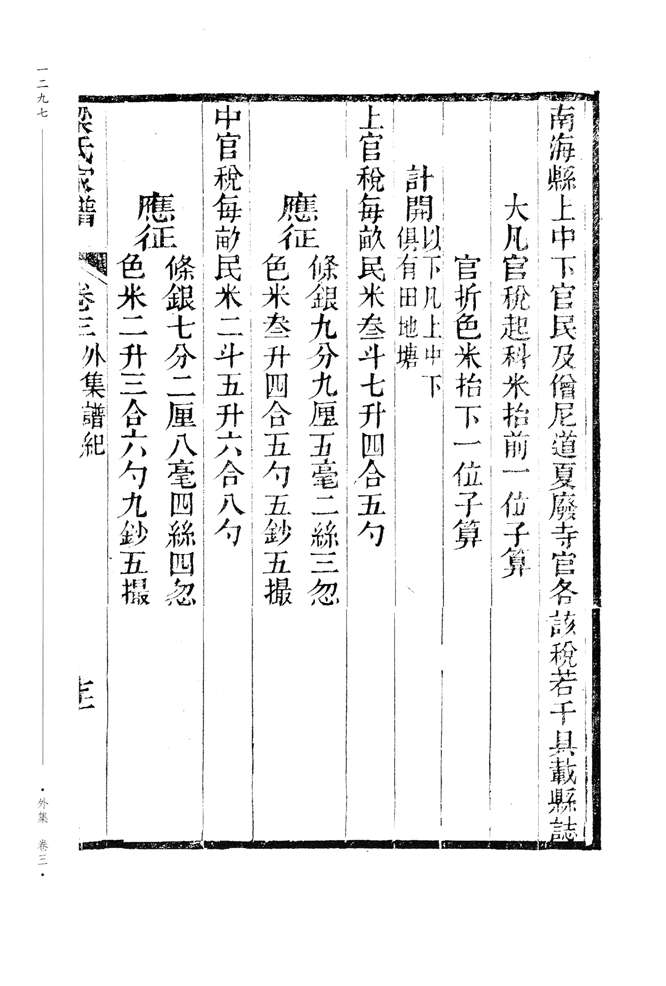 南海縣上中下官民及僧尼道夏廢寺官各該稅若干具載縣誌
大凡官稅起科米抬前一位子算
官折色米抬下一位子算
計開以下凡上中下
俱有田地塘
上官稅每畝民米叁斗七升四合五勺
應征條銀九分九厘五毫二絲三忽
色米叁升四合五勺五鈔五撮
中官稅每畝民米二斗五升六合八勺
應征條銀七分二厘八毫四絲四忽
色米二升三合六勺九鈔五撮
梁氏家譜 卷三 外集譜紀
一二九七
·外集 卷三·